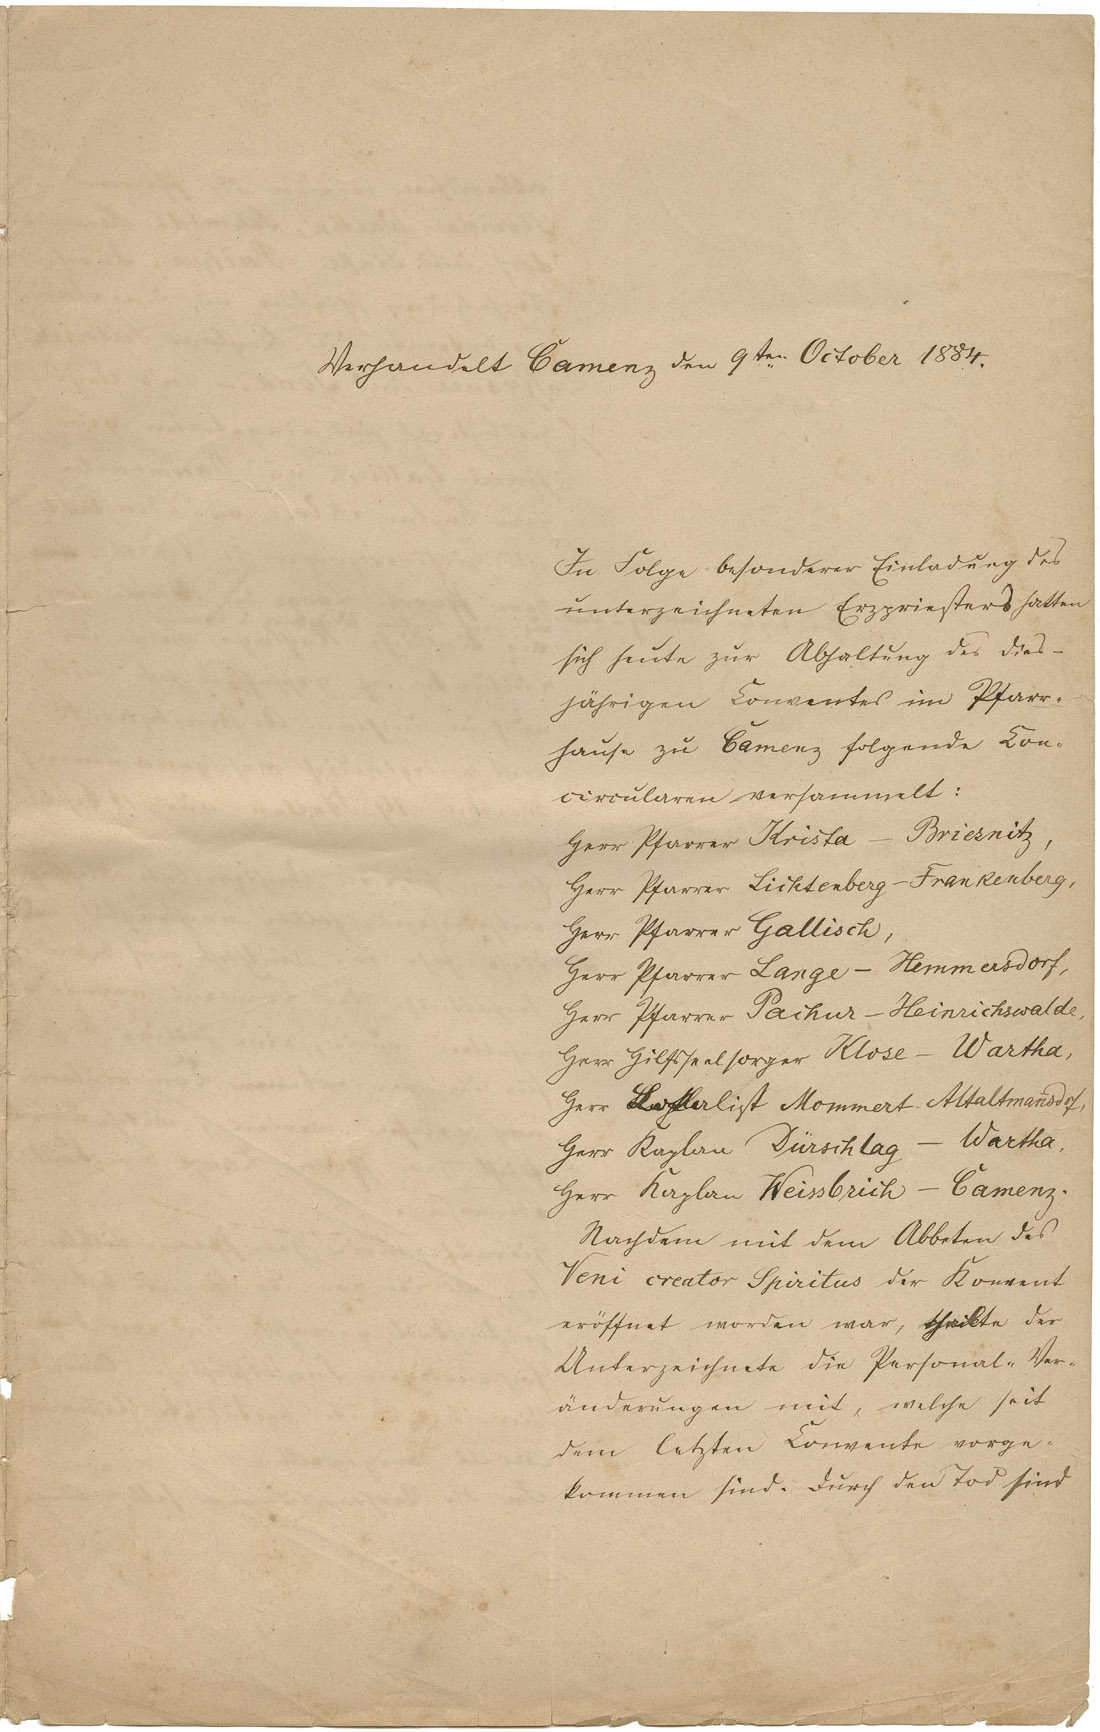 Verhandelt Camenz den 9ten October 1884.
In Folge besonderer Einladung des
unterzeichneten Erzpriesters hatten
sich heute zur Abhaltung des dies-
jährigen Conventes im Pfarr-
hause zu Camenz folgende Con-
circularen versammelt:
Herr Pfarrer Krista - Briesnitz,
Herr Pfarrer Lichtenberg - Frankenberg,
Herr Pfarrer Gallisch,
Herr Pfarrer Lange - Hemmersdorf,
Herr Pfarrer Pachur - Heinrichswalde,
Herr Hilfsseelsorger Klose - Wartha,
Herr Mommert - Altaltmansdorf,
Herr Kaplan Dürschlag - Wartha,
Herr Kaplan Weissbrich - Camenz.
Nachdem mit dem Abbeten des
Veni creator Spiritus der Konvent
eröffnet worden war, theilte der
Unterzeichnete die Personal-Ver-
änderungen mit, welche seit
dem letzten Convente vorge-
kommen sind. Durch den Tod sind